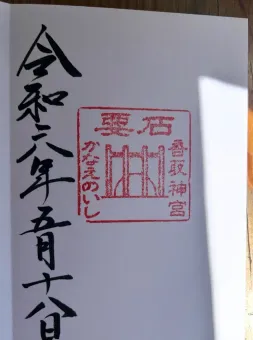 令和六年五月十八日
要石
香取神宮
かなめのいし